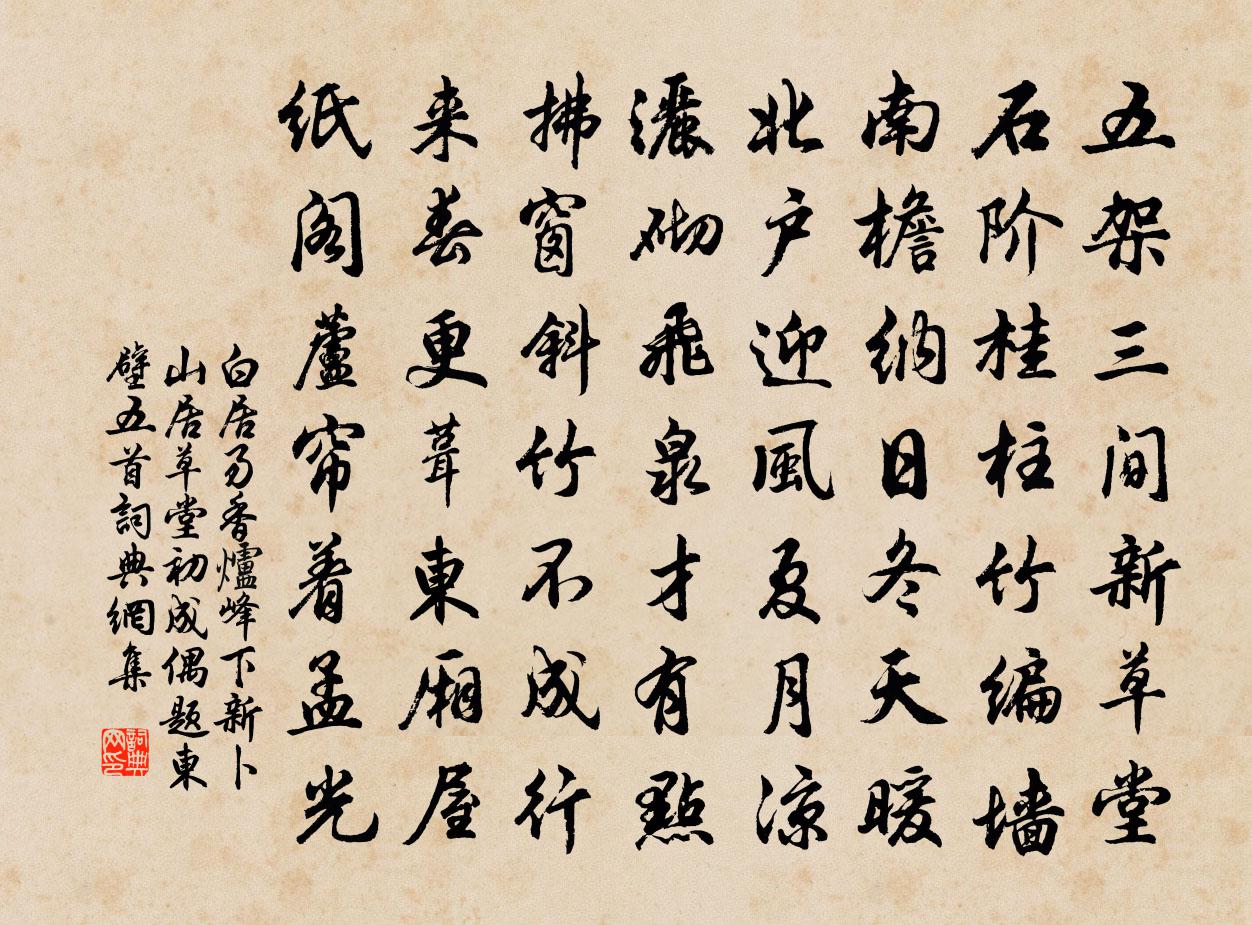 五架三间新草堂
石阶桂柱竹编墙
南檐纳日冬天暖
北户迎風夏月凉
灑砌飛泉才有點
拂窗斜竹不成行
来春更葺東厢屋
紙阁蘆帘着孟光
白居易香爐峰下新卜
山居草堂初成偶题東
壁五首詞典網集
詞典
网印